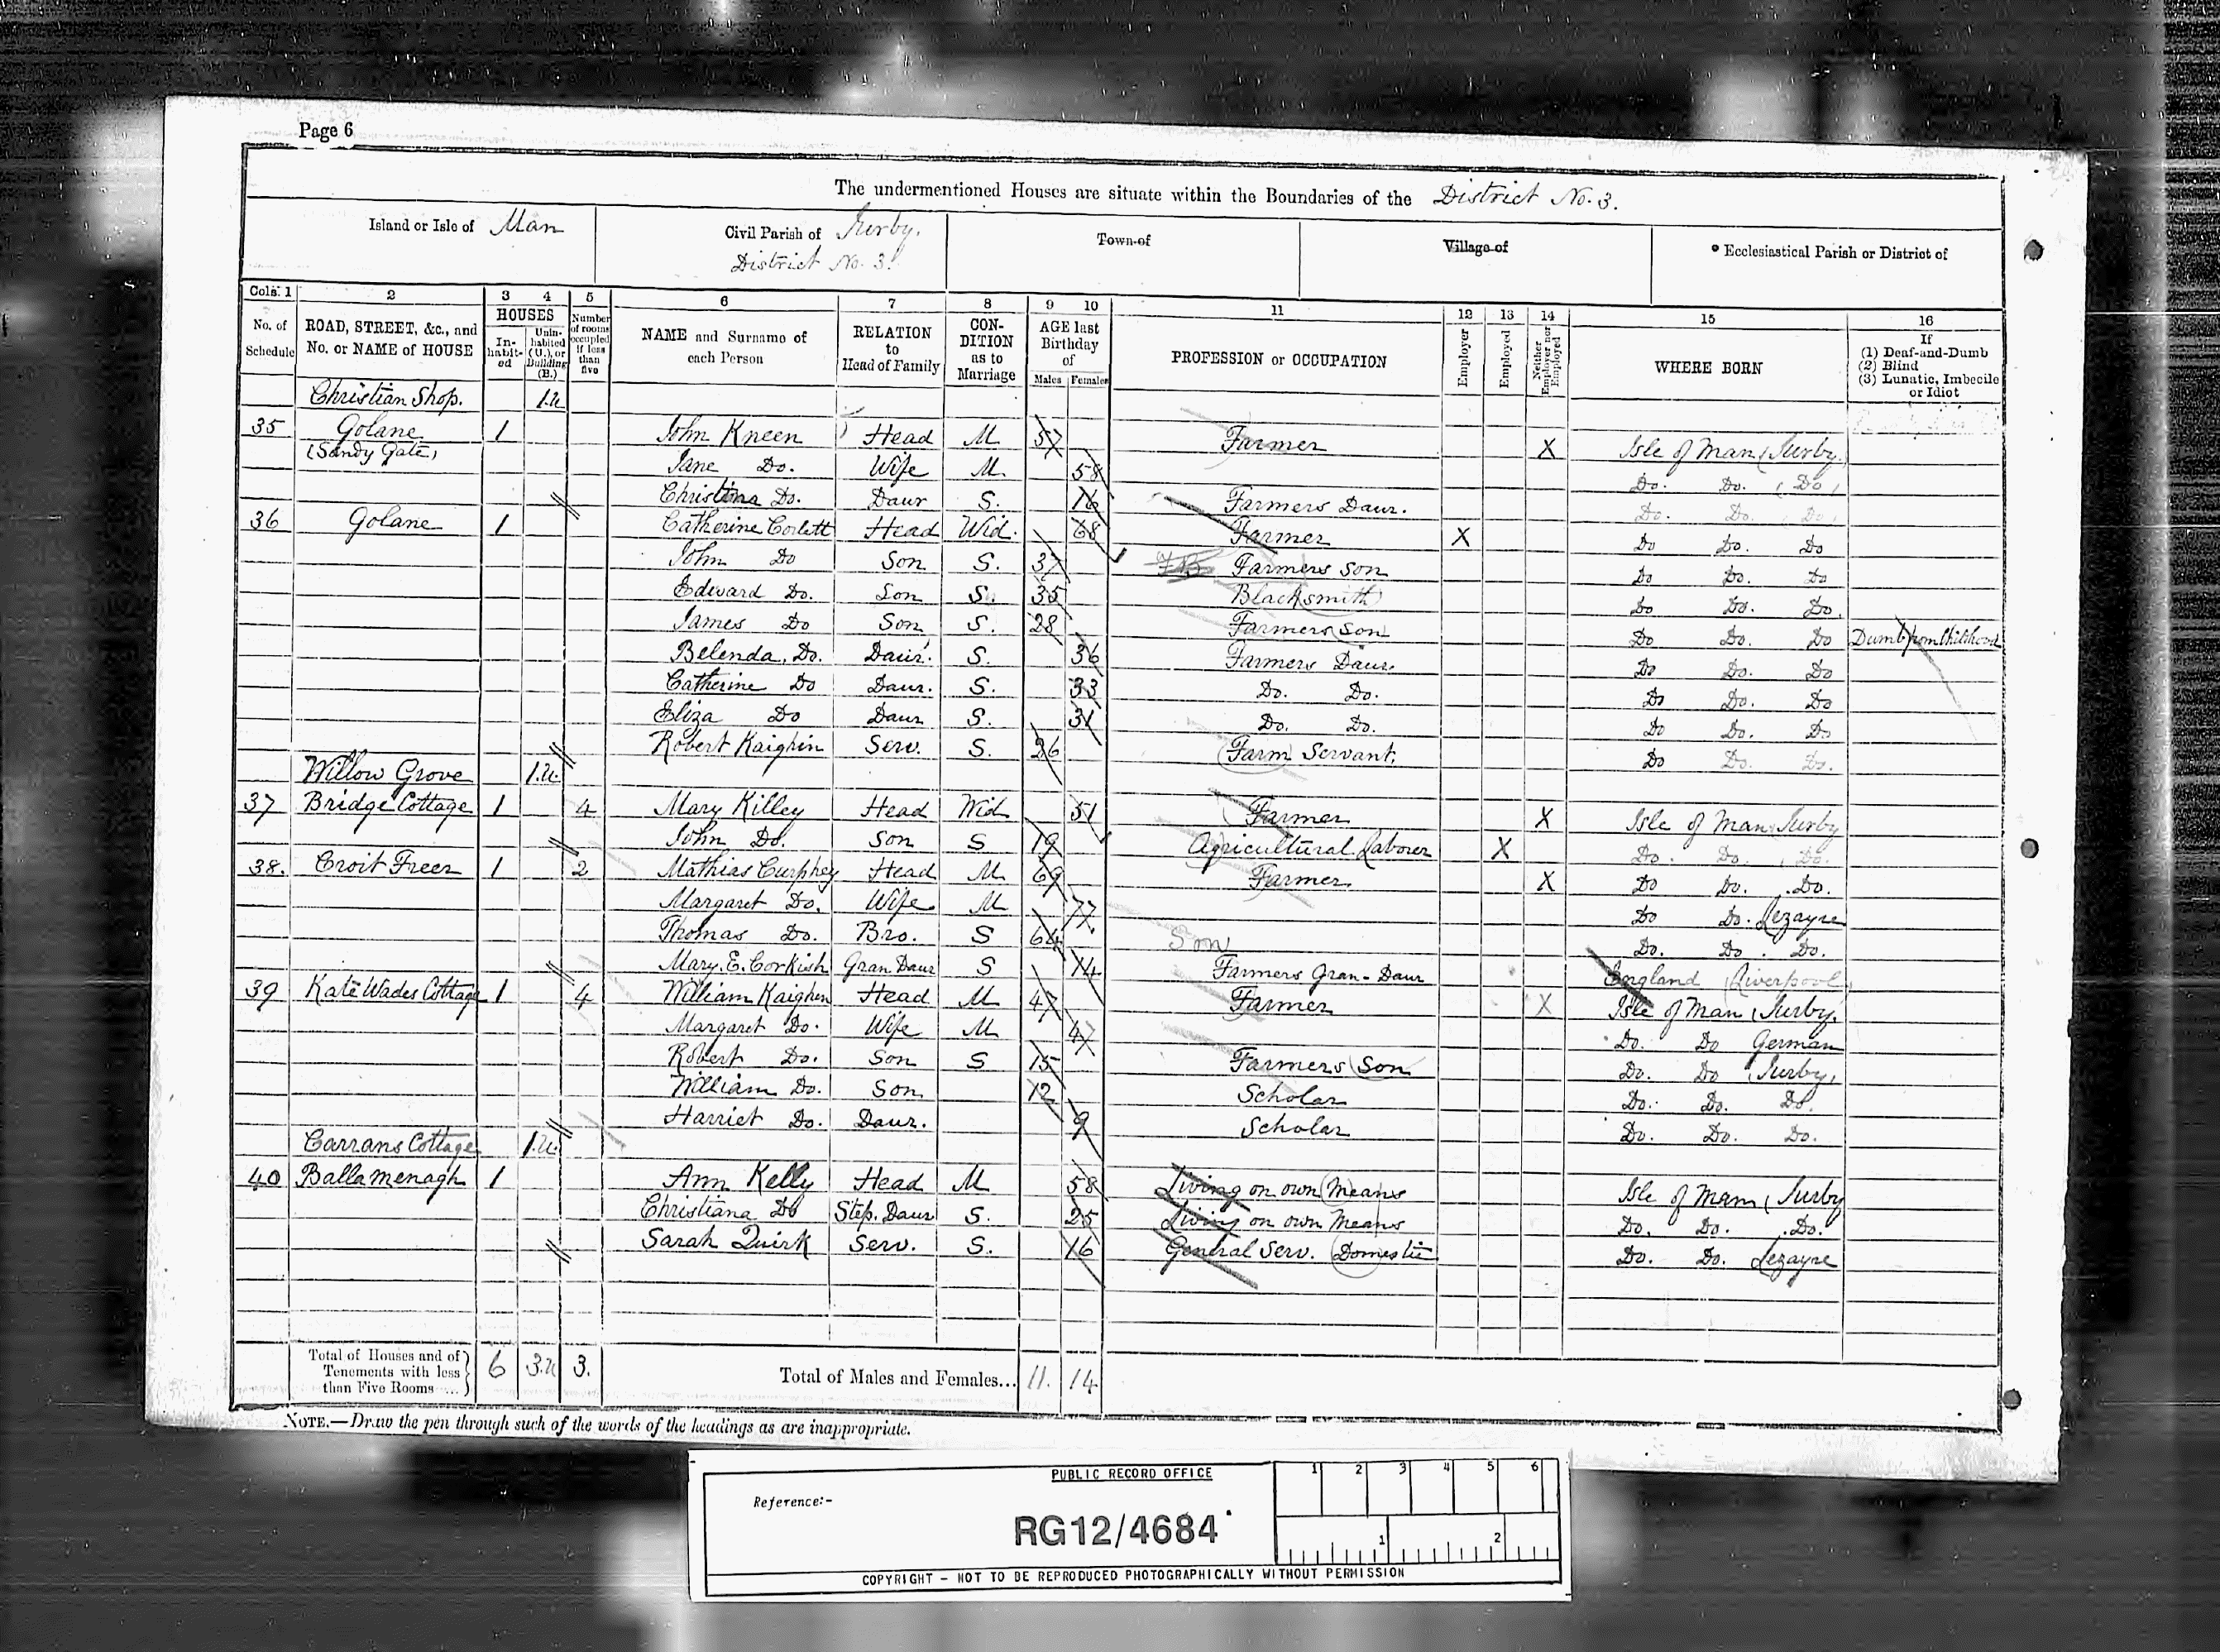 Page 6
The undermentioned Houses are situate within the Boundaries of the District No. 3.
Island or Isle of Man
Civil Parish of Jurby.
District No. 3.
Town of
Village of
Ecclesiastical Parish or District of
Cols. 1 2 3 4 5 6 7 8 9 10 11 12 13 14 15 16
No. of Schedule
ROAD, STREET, &c., and No. or NAME of HOUSE
HOUSES
In-habit-ed
Unin-habited (U.), or Building (B.)
Number of rooms occupied if less than five
NAME and Surname of each Person
RELATION to Head of Family
CON-DITION as to Marriage
AGE last Birthday of
Males Females
PROFESSION or OCCUPATION
Employer
Employed
Neither Employer nor Employed
WHERE BORN
If
(1) Deaf-and-Dumb
(2) Blind
(3) Lunatic, Imbecile or Idiot
Christian Shop. 1.U
35 Golane 1 John Kneen Head M 57 Farmer X Isle of Man (Jurby)
(Sandy Gate) Jane Do. Wife M 58 Do. Do. (Do)
Christina Do. Daur S. 16 Farmers Daur. Do. Do. Do.
36 Golane 1 Catherine Corlett Head Wid. 68 Farmer X Do Do. Do
John Do Son S. 37 Farmers Son Do Do. Do
Edward Do. Son S. 35 Blacksmith Do Do. Do.
James Do Son S. 28 Farmers Son Do Do. Do Dumb from Childhood
Belenda Do. Daur. S. 36 Farmers Daur. Do Do. Do
Catherine Do Daur. S. 33 Do. Do. Do Do. Do
Eliza Do Daur S. 31 Do. Do. Do Do. Do
Robert Kaighin Serv. S. 26 Farm Servant. Do Do. Do.
Willow Grove 1.U.
37 Bridge Cottage 1 4 Mary Killey Head Wid 51 Farmer X Isle of Man Jurby
John Do. Son S 19 Agricultural Laborer X Do. Do. Do.
38. Croit Freer 1 2 Mathias Curphey Head M 69 Farmer X Do Do. Do.
Margaret Do. Wife M 77 Do Do. Lezayre
Thomas Do. Bro. S 64 Son Do. Do. Do.
Mary. E. Corkish Gran Daur S 14 Farmers Gran-Daur England (Liverpool)
39 Kate Wades Cottage 1 4 William Kaighen Head M 47 Farmer X Isle of Man (Jurby.
Margaret Do. Wife M 47 Do. Do German
Robert Do. Son S 15 Farmers Son Do. Do (Jurby)
William Do. Son 12 Scholar Do. Do. Do.
Harriet Do. Daur. 9 Scholar Do. Do. Do.
Carrans Cottage 1.U.
40 Ballamenagh 1 Ann Kelly Head M 58 Living on own Means Isle of Man (Jurby
Christiana Do Step. Daur S. 25 Living on own Means Do. Do. Do.
Sarah Quirk Serv. S. 16 General Serv. Domestic Do. Do. Lezayre
Total of Houses and of Tenements with less than Five Rooms ... 6 3.U 3. Total of Males and Females... 11. 14
NOTE.—Draw the pen through such of the words of the headings as are inappropriate.
PUBLIC RECORD OFFICE
1 2 3 4 5 6
Reference:-
RG12/4684
1 2
COPYRIGHT - NOT TO BE REPRODUCED PHOTOGRAPHICALLY WITHOUT PERMISSION